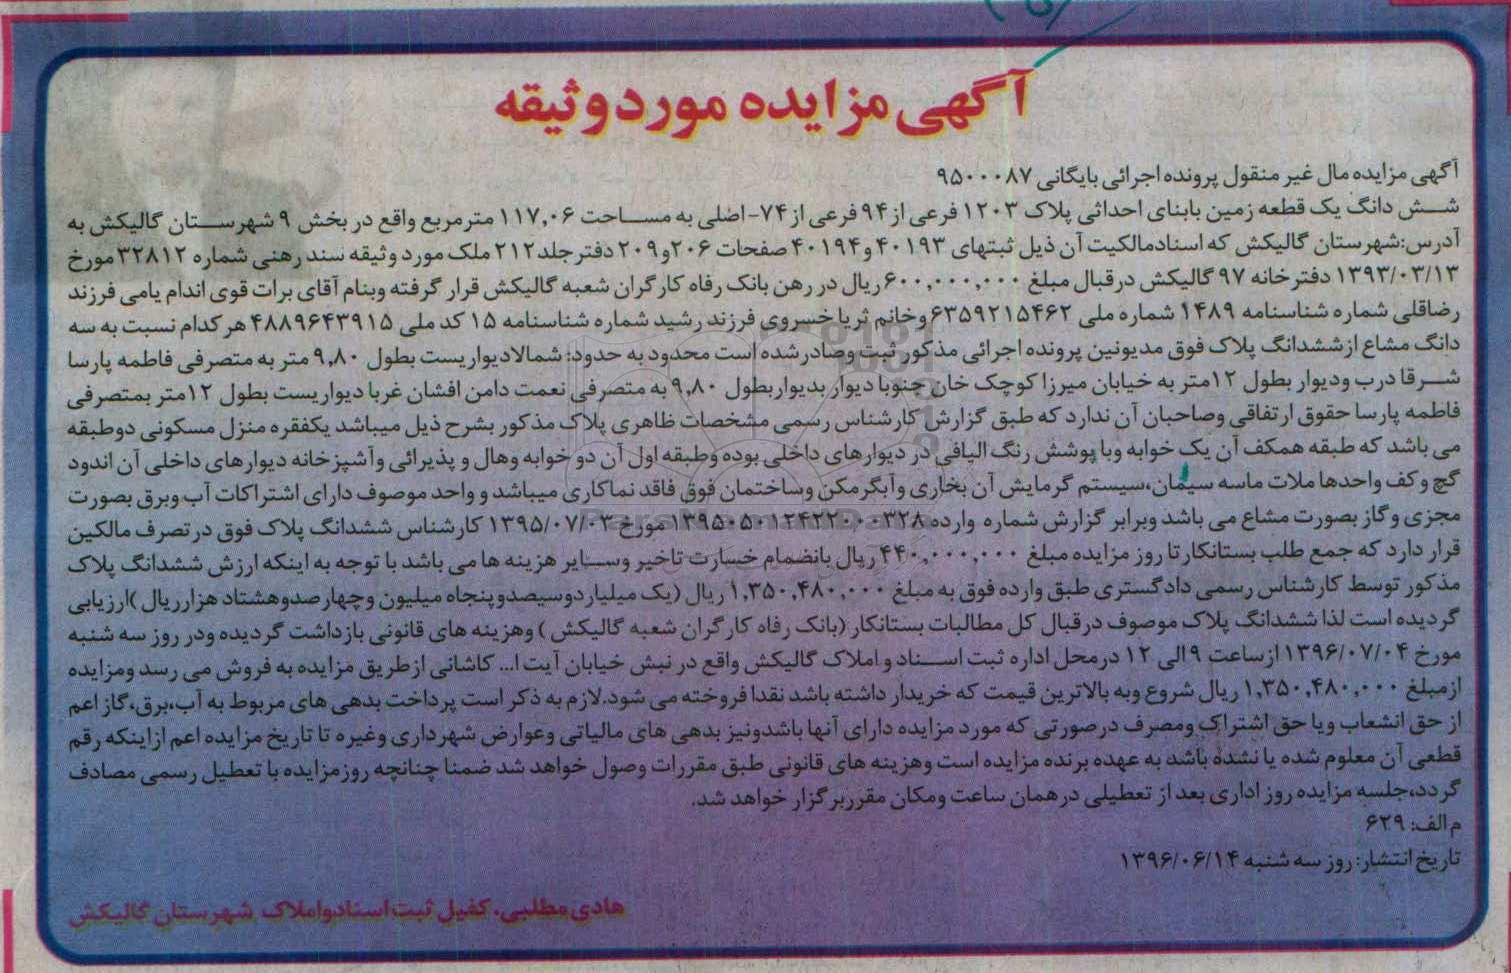 آگهی مزایده مورد وثیقه
آگهی مزایده مال غیر منقول پرونده اجرائی بایگانی ۹۵۰۰۰۸۷
شش دانگ یک قطعه زمین بابنای احداثی پلاک ۱۲۰۳ فرعی از ۹۴ فرعی از ۷۴- اصلی به مساحت ۱۱۷,۰۶ مترمربع واقع در بخش ۹ شهرستان گالیکش به
آدرس:شهرستان گالیکش که اسنادمالکیت آن ذیل ثبتهای ۴۰۱۹۳ و ۴۰۱۹۴ صفحات ۲۰۶ و ۲۰۹ دفترجلد ۲۱۲ ملک مورد وثیقه سند رهنی شماره ۳۲۸۱۲ مورخ
۱۳۹۳/۰۳/۱۳ دفترخانه ۹۷ گالیکش درقبال مبلغ ۶۰۰,۰۰۰,۰۰۰ ریال در رهن بانک رفاه کارگران شعبه گالیکش قرار گرفته وبنام آقای برات قوی اندام یامی فرزند
رضاقلی شماره شناسنامه ۱۴۸۹ شماره ملی ۶۳۵۹۲۱۵۴۶۲ وخانم ثریا خسروی فرزند رشید شماره شناسنامه ۱۵ کد ملی ۴۸۸۹۶۴۳۹۱۵ هرکدام نسبت به سه
دانگ مشاع ازششدانگ پلاک فوق مدیونین پرونده اجرائی مذکور ثبت وصادرشده است محدود به حدود: شمالادیواریست بطول ۹,۸۰ متر به متصرفی فاطمه پارسا
شرقا درب ودیوار بطول ۱۲متر به خیابان میرزا کوچک خان جنوبا دیوار بدیواربطول ۹,۸۰ به متصرفی نعمت دامن افشان غربا دیواریست بطول ۱۲متر بمتصرفی
فاطمه پارسا حقوق ارتفاقی وصاحبان آن ندارد که طبق گزارش کارشناس رسمی مشخصات ظاهری پلاک مذکور بشرح ذیل میباشد یکفقره منزل مسکونی دوطبقه
می باشد که طبقه همکف آن یک خوابه وبا پوشش رنگ الیافی در دیوارهای داخلی بوده وطبقه اول آن دو خوابه وهال و پذیرائی وآشپزخانه دیوارهای داخلی آن اندود
گچ وکف واحدها ملات ماسه سیمان،سیستم گرمایش آن بخاری وآبگرمکن وساختمان فوق فاقد نماکاری میباشد و واحد موصوف دارای اشتراکات آب وبرق بصورت
مجزی وگاز بصورت مشاع می باشد وبرابر گزارش شماره وارده ۱۳۹۵۰۵۰۱۲۴۲۲۰۰۰۳۲۸ مورخ ۱۳۹۵/۰۷/۰۳ کارشناس ششدانگ پلاک فوق در تصرف مالکین
قرار دارد که جمع طلب بستانکار تا روز مزایده مبلغ ۴۴۰,۰۰۰,۰۰۰ ریال بانضمام خسارت تاخیر وسایر هزینه ها می باشد با توجه به اینکه ارزش ششدانگ پلاک
مذکور توسط کارشناس رسمی دادگستری طبق وارده فوق به مبلغ ۱,۳۵۰,۴۸۰,۰۰۰ ریال (یک میلیاردوسیصدوپنجاه میلیون وچهارصدوهشتاد هزارریال )ارزیابی
گردیده است لذا ششدانگ پلاک موصوف درقبال کل مطالبات بستانکار (بانک رفاه کارگران شعبه گالیکش ) وهزینه های قانونی بازداشت گردیده ودر روز سه شنبه
مورخ ۱۳۹۶/۰۷/۰۴ ازساعت ۹الی ۱۲ درمحل اداره ثبت اسناد و املاک گالیکش واقع در نبش خیابان آیت ا... کاشانی ازطریق مزایده به فروش می رسد ومزایده
ازمبلغ ۱,۳۵۰,۴۸۰,۰۰۰ ریال شروع وبه بالاترین قیمت که خریدار داشته باشد نقدا فروخته می شود.لازم به ذکر است پرداخت بدهی های مربوط به آب،برق،گاز اعم
از حق انشعاب ویا حق اشتراک ومصرف درصورتی که مورد مزایده دارای آنها باشدونیز بدهی های مالیاتی وعوارض شهرداری وغیره تا تاریخ مزایده اعم ازاینکه رقم
قطعی آن معلوم شده یا نشده باشد به عهده برنده مزایده است وهزینه های قانونی طبق مقررات وصول خواهد شد ضمنا چنانچه روزمزایده با تعطیل رسمی مصادف
گردد،جلسه مزایده روز اداری بعد از تعطیلی درهمان ساعت ومکان مقرربرگزار خواهد شد.
م الف: ۶۲۹
تاریخ انتشار: روز سه شنبه ۱۳۹۶/۰۶/۱۴
هادی مطلبی. کفیل ثبت اسنادواملاک شهرستان گالیکش